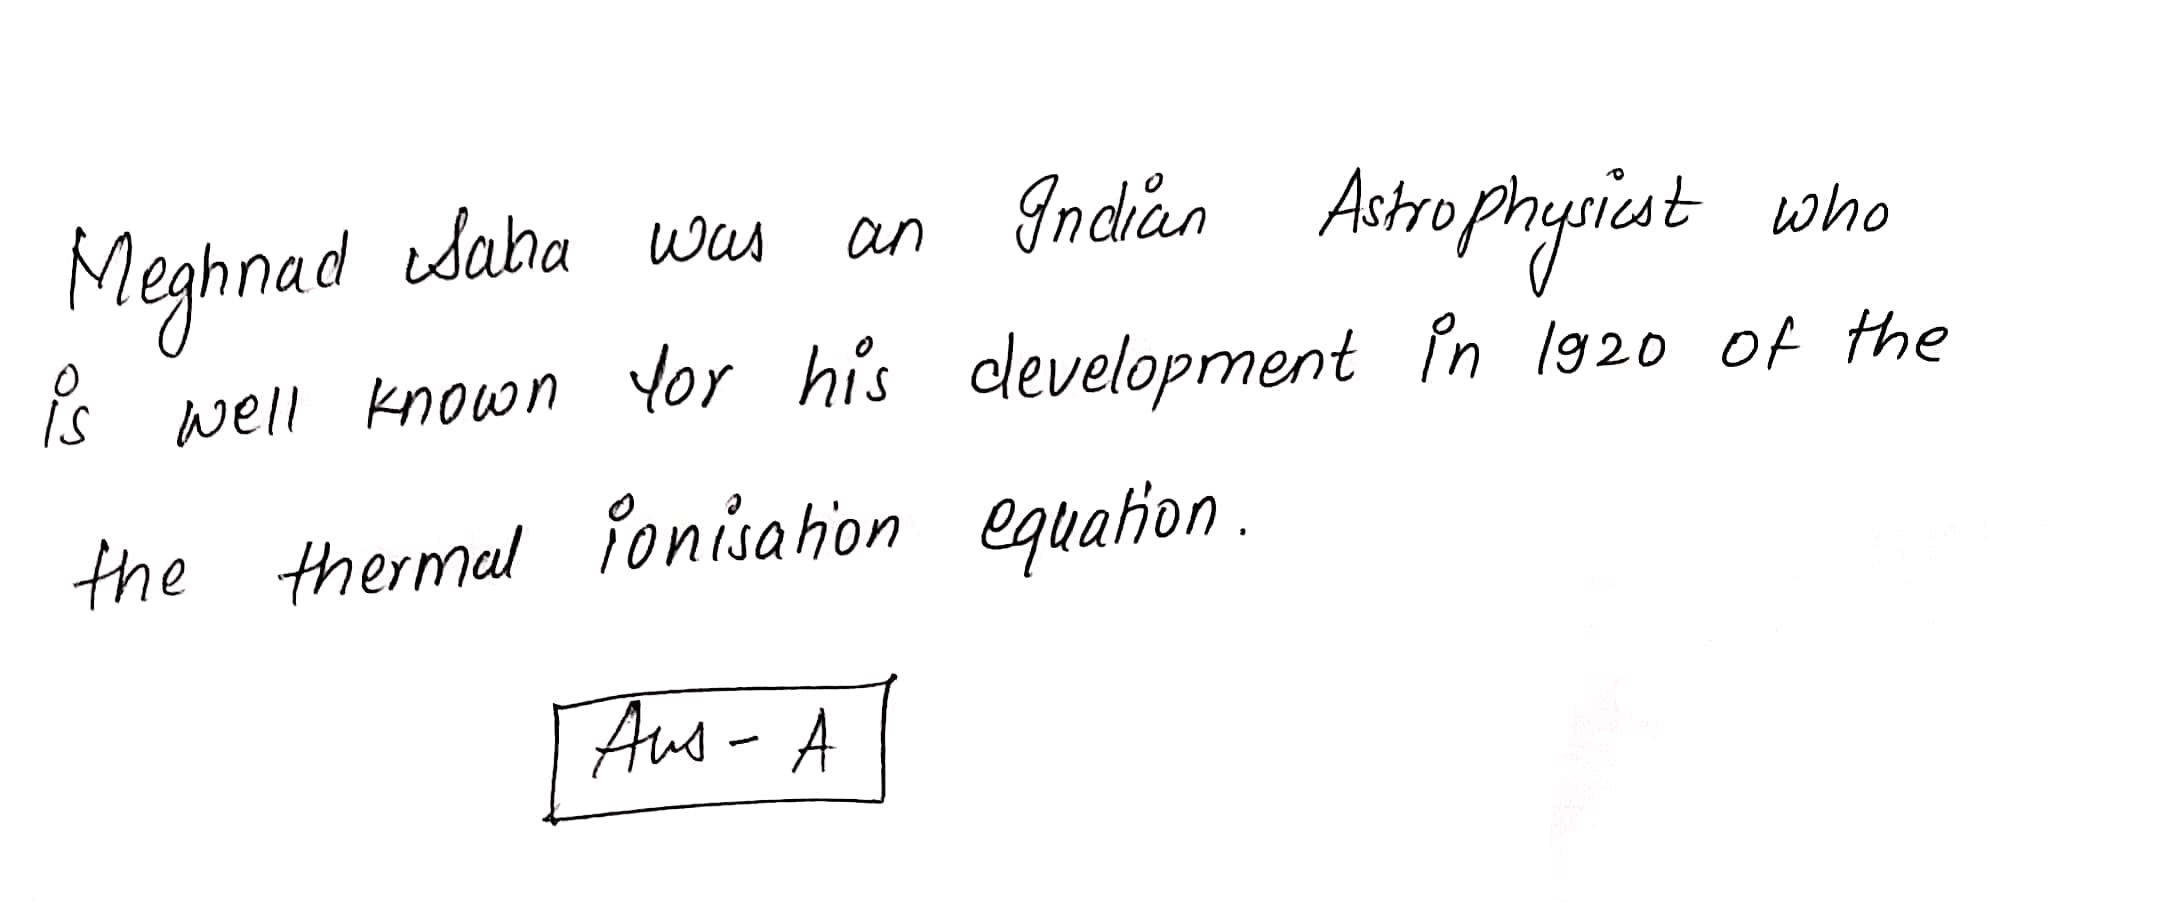 Meghnad Saha was an Indian Astrophysicst who
is well known for his development in 1920 of the
the thermal ionisation equation.
Ans - A